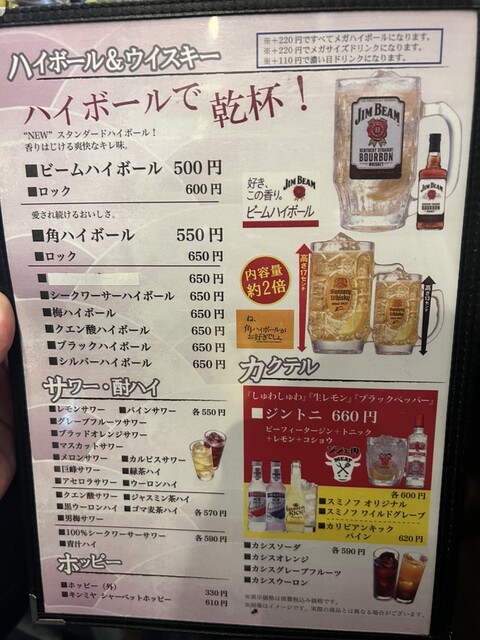 ※＋220円ですべてメガハイボールになります。
※＋220円でメガサイズドリンクになります。
※＋110円で濃い目ドリンクになります。
ハイボール＆ウイスキー
ハイボールで 乾杯！
"NEW" スタンダードハイボール！
香りはじける爽快なキレ味。
■ビームハイボール 500円
■ロック 600円
愛され続けるおいしさ。
■角ハイボール 550円
■ロック 650円
■ 650円
■シークワーサーハイボール 650円
■梅ハイボール 650円
■クエン酸ハイボール 650円
■ブラックハイボール 650円
■シルバーハイボール 650円
JIM BEAM
KENTUCKY STRAIGHT
BOURBON
WHISKEY
好き、
この香り。
JIM BEAM
ビームハイボール
内容量
約2倍
高さ17センチ
高さ13センチ
ね、
角ハイボールが
お好きでしょ。
サワー・酎ハイ
■レモンサワー ■パインサワー 各550円
■グレープフルーツサワー
■ブラッドオレンジサワー
■マスカットサワー
■メロンサワー ■カルピスサワー
■巨峰サワー ■緑茶ハイ
■アセロラサワー ■ウーロンハイ
■クエン酸サワー ■ジャスミン茶ハイ
■黒ウーロンハイ ■ゴマ麦茶ハイ 各570円
■男梅サワー
■100%シークワーサーサワー 各590円
■青汁ハイ
ホッピー
■ホッピー（外） 330円
■キンミヤ シャーベットホッピー 610円
カクテル
「しゅわしゅわ」「生レモン」「ブラックペッパー」
■ジントニ 660円
ビーフィータージン＋トニック
＋レモン＋コショウ
MEAT
各600円
■スミノフ オリジナル
■スミノフ ワイルドグレープ
■カリビアンキック
パイン 620円
■カシスソーダ 各590円
■カシスオレンジ
■カシスグレープフルーツ
■カシスウーロン
※表示価格は消費税込み価格です。
※画像はイメージです。実際の商品とは異なる場合がございます。